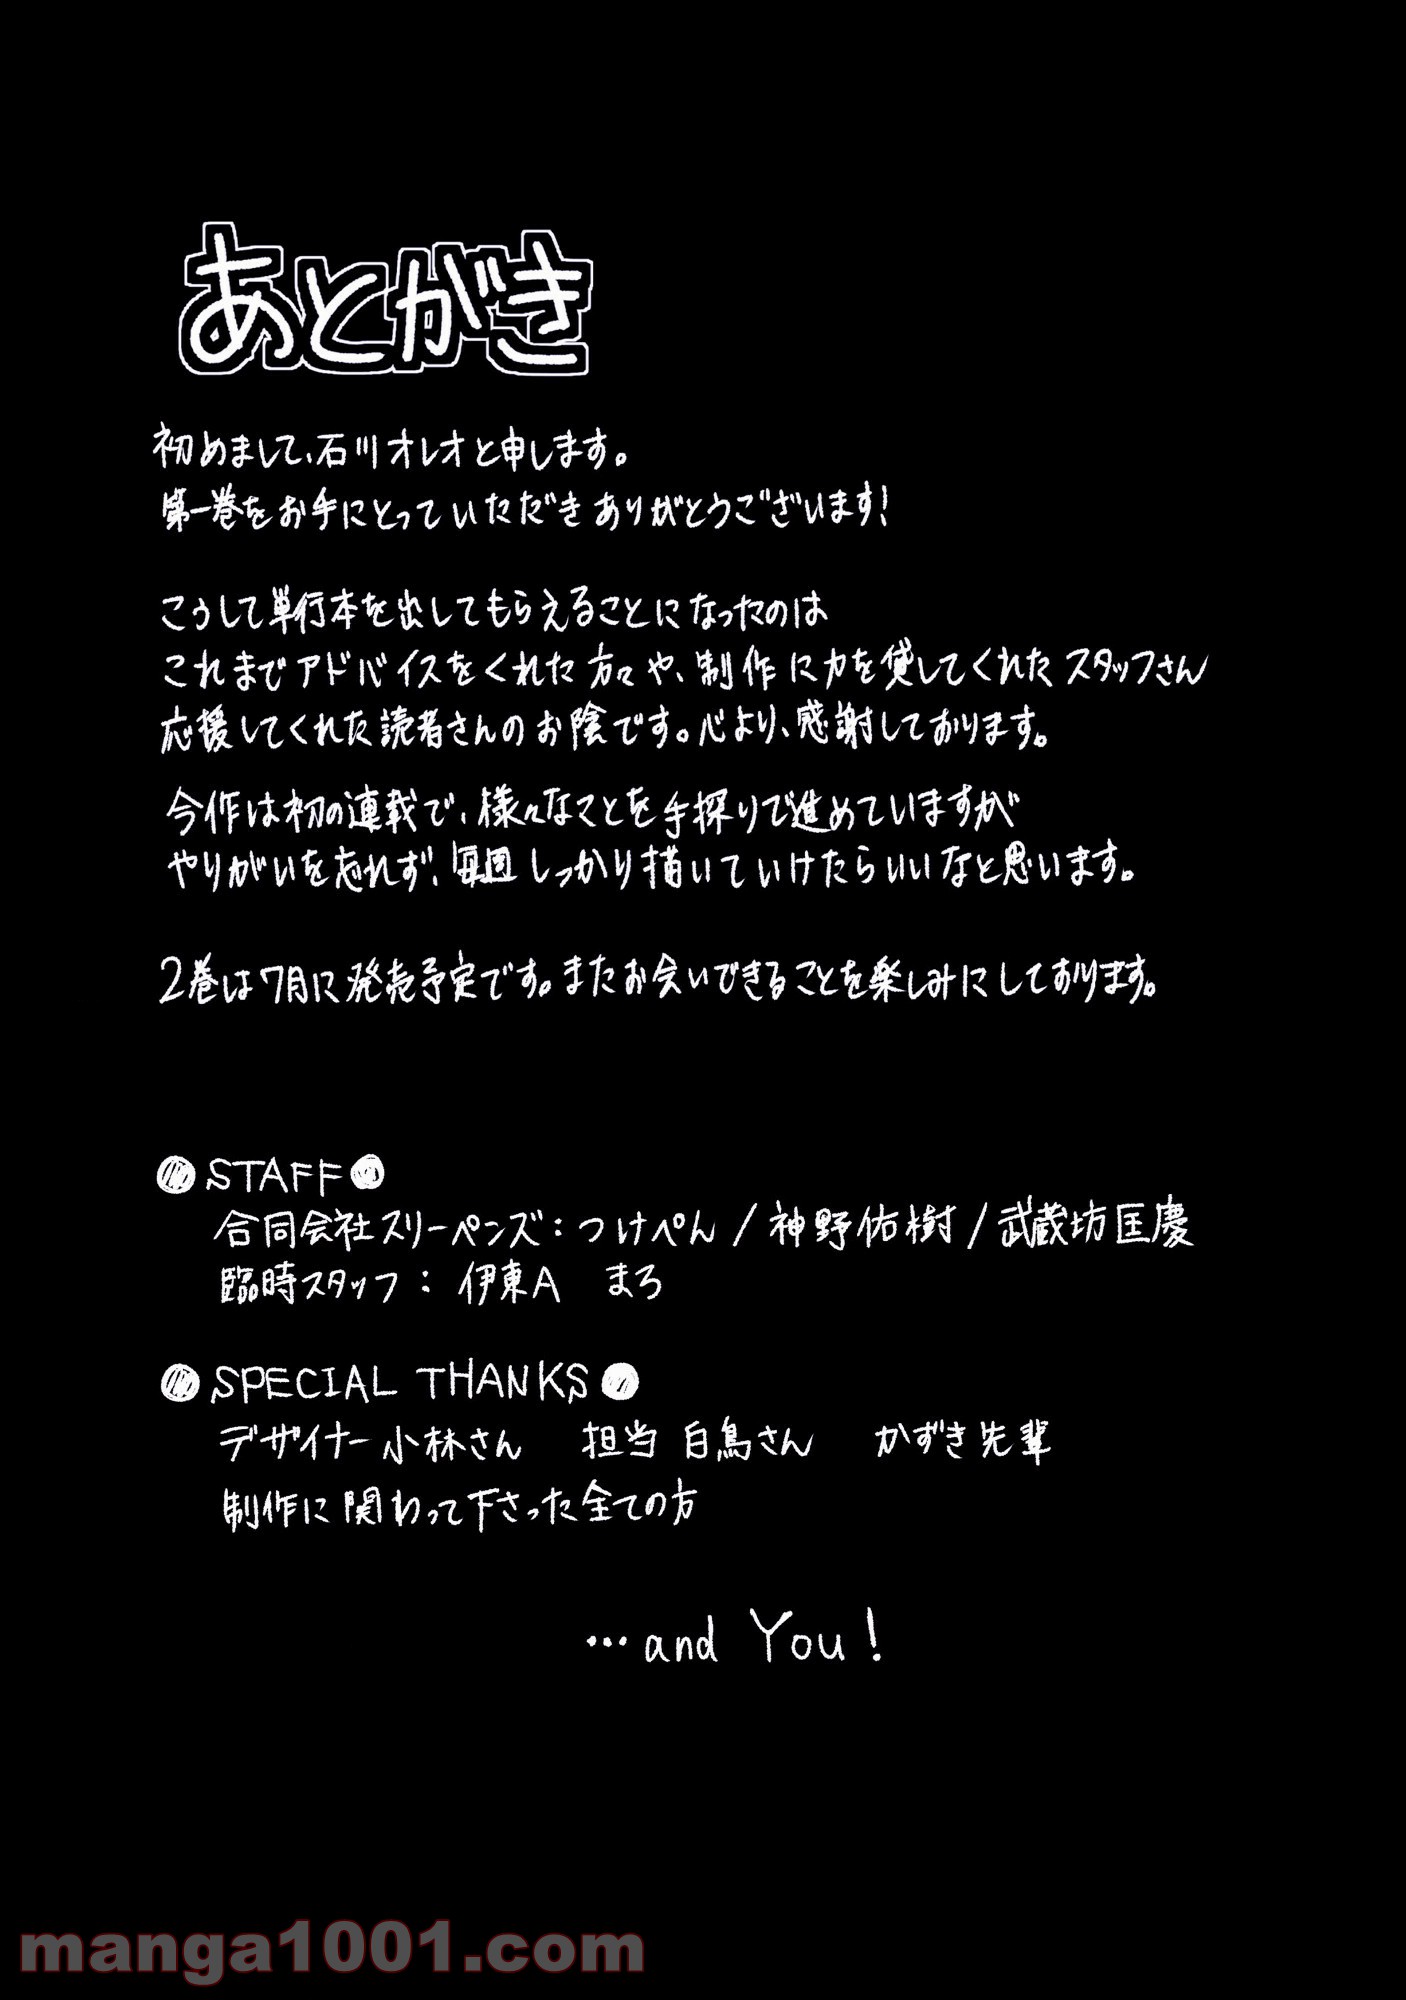 あとがき
初めまして、石川オレオと申します。
第一巻をお手にとっていただきありがとうございます!
こうして単行本を出してもらえることになったのは
これまでアドバイスをくれた方々や、制作に力を貸してくれたスタッフさん
応援してくれた読者さんのお陰です。心より、感謝しております。
今作は初の連載で、様々なことを手探りで進めていますが
やりがいを忘れず、毎週しっかり描いていけたらいいなと思います。
2巻は7月に発売予定です。またお会いできることを楽しみにしております。
●STAFF●
合同会社スリーペンズ:つけぺん/神野佑樹/武蔵坊匡慶
臨時スタッフ: 伊東A まろ
●SPECIAL THANKS●
デザイナー小林さん 担当 白鳥さん かずき先輩
制作に関わって下さった全ての方
…and You!
manga1001.com